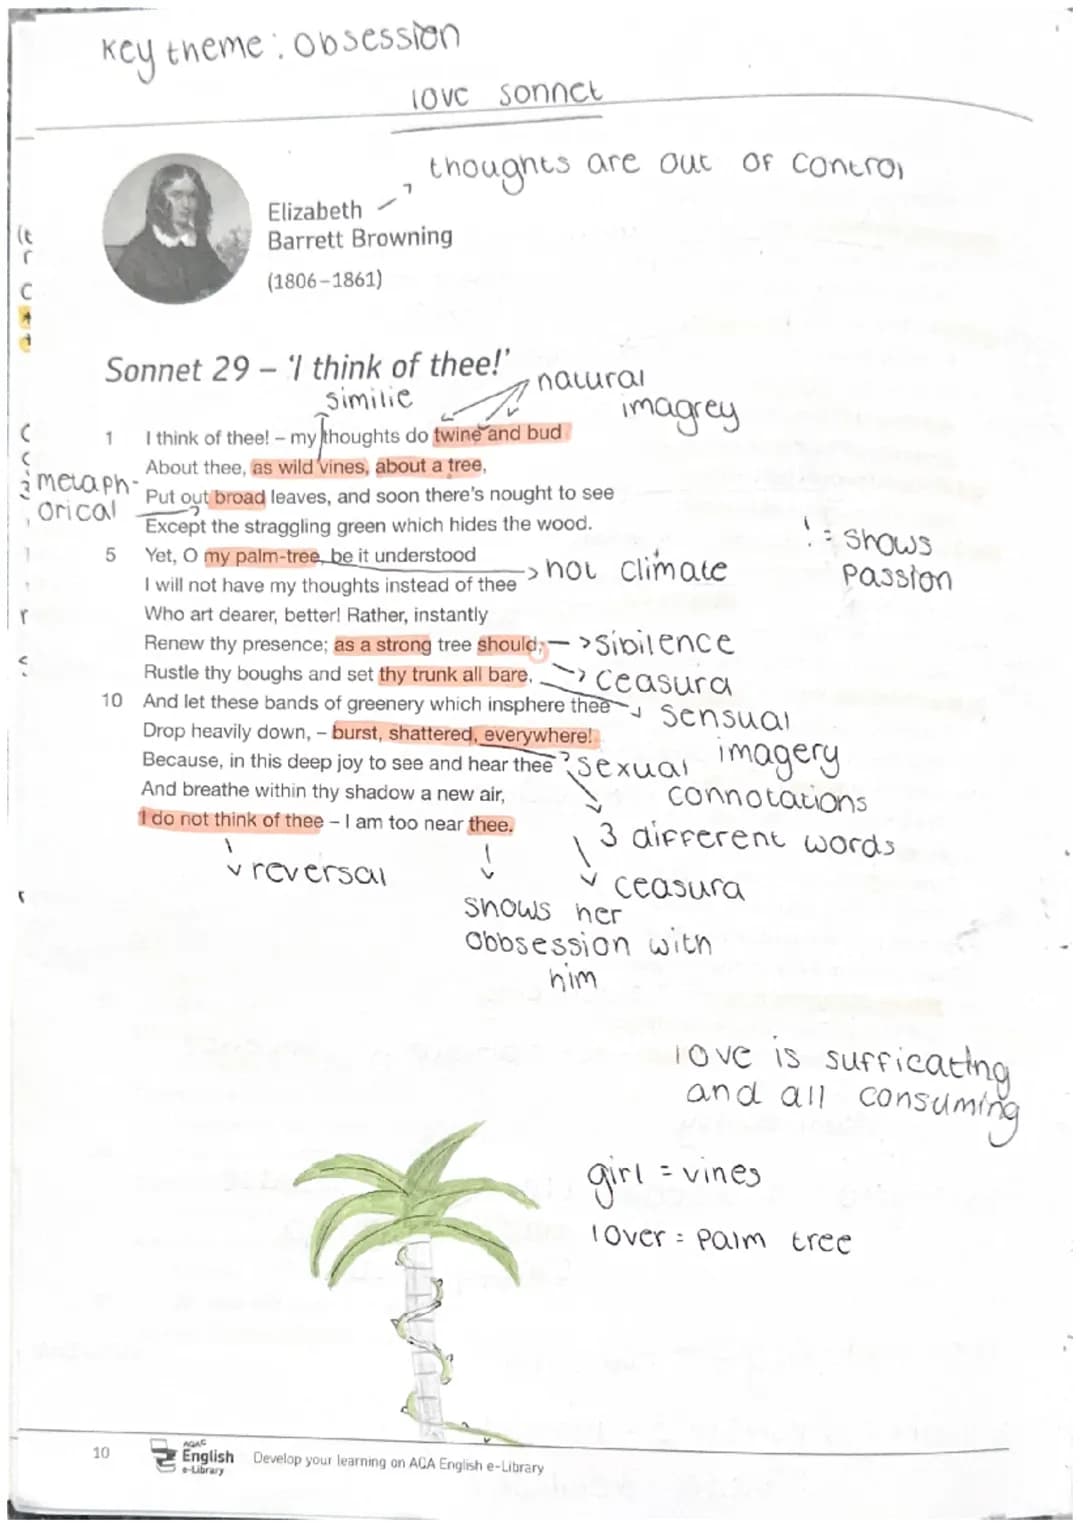 Key theme: Obsession
love sonnet
thoughts are out of control
Elizabeth
Barrett Browning
(1806–1861)
Sonnet 29 – 'I think of thee!'
similie
natural
imagrey
1 I think of thee! – my thoughts do twine and bud
About thee, as wild vines, about a tree,
metaph-
orical
Put out broad leaves, and soon there's nought to see
Except the straggling green which hides the wood.
! = shows
passion
5 Yet, O my palm-tree, be it understood
hot climate
I will not have my thoughts instead of thee
Who art dearer, better! Rather, instantly
Renew thy presence; as a strong tree should,
sibilence
Rustle thy boughs and set thy trunk all bare,
ceasura
10 And let these bands of greenery which insphere thee
sensual
imagery
Drop heavily down, – burst, shattered, everywhere!
Because, in this deep joy to see and hear thee
sexual
connotations
And breathe within thy shadow a new air,
I do not think of thee – I am too near thee.
3 different words
reversal
ceasura
shows her
obbsession with
him
love is sufficating
and all consuming
girl = vines
lover = palm tree
10
AQA
English
e-Library
Develop your learning on AQA English e-Library